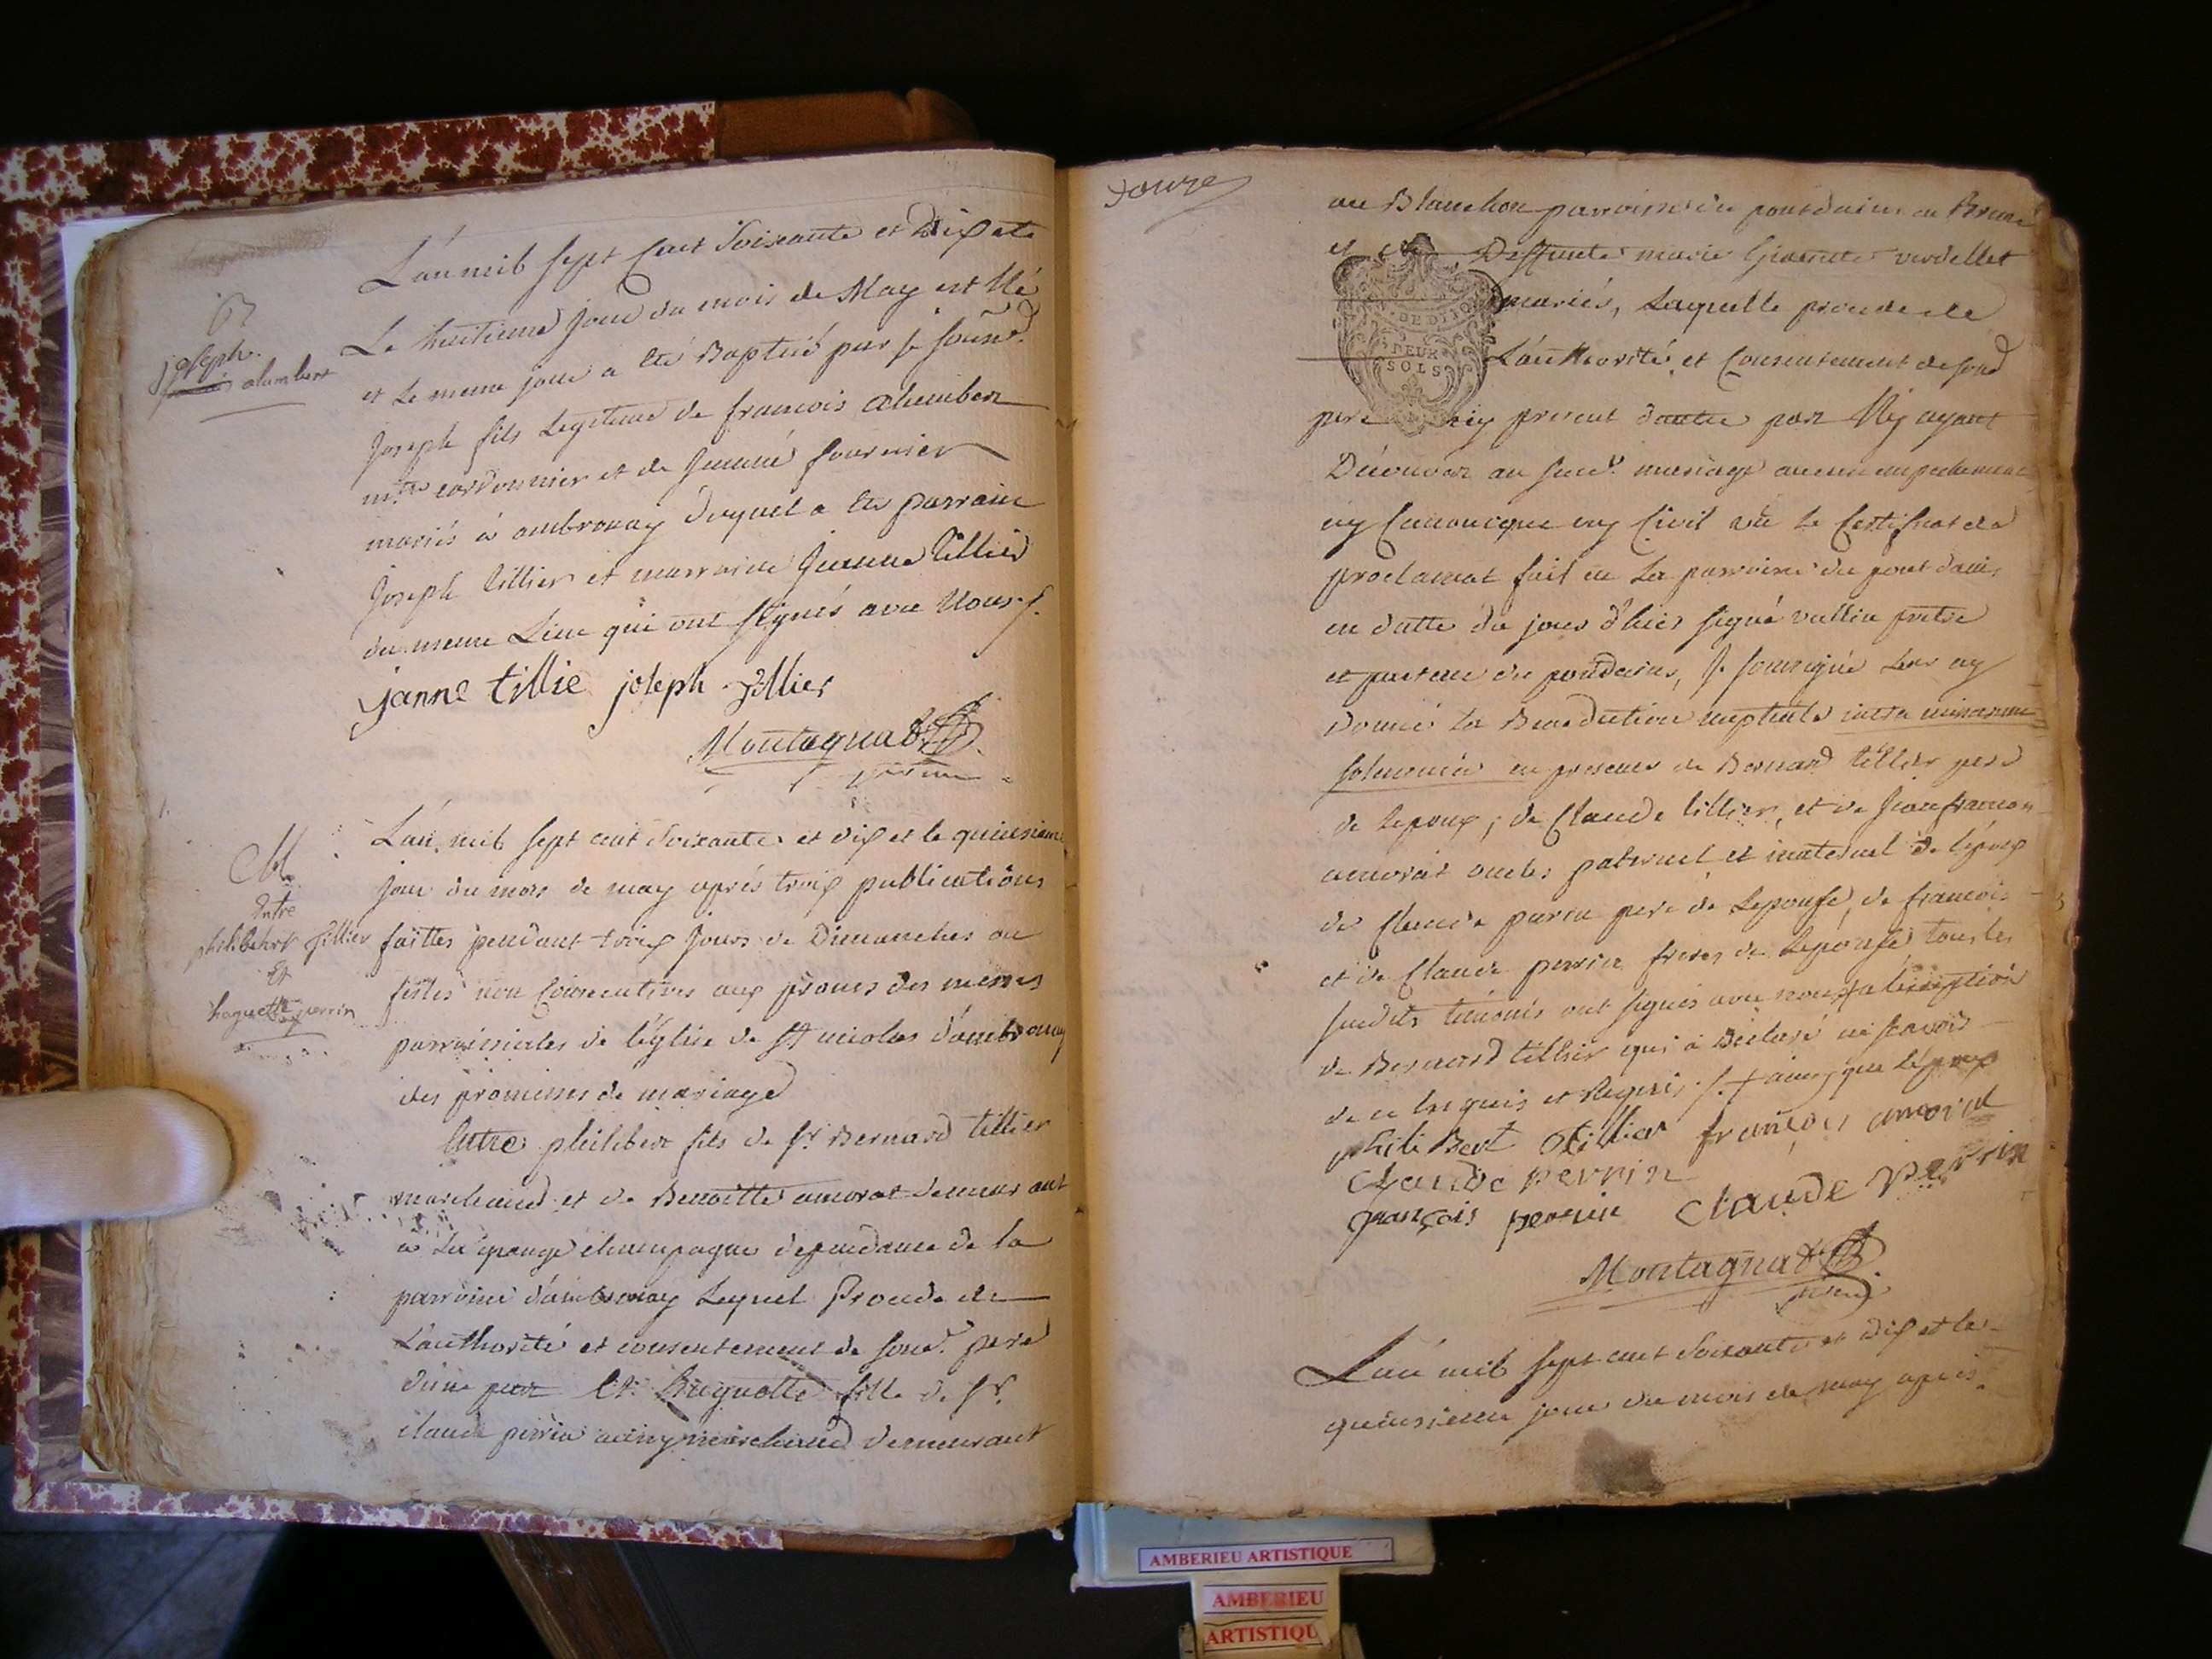 B
joseph
alumbert
L'an mil sept cent soixante et Dix et
Le huitieme jour du mois de May est Né
et Le meme jour a été Baptisé par je soussé
Joseph fils Legitime de francois alumbert
mtre cordonnier et de Jeanne fournier
mariés à ambronay duquel a été parrain
Joseph tillier et marraine Jeanne tillier
du meme Lieu qui ont signés avec Nous
janne tillie joseph Tillier
Montagnat
M
Entre
philibehrt Tillier
Et
huguette perrin
L'an mil sept cent soixante et dix et le quinsieme
jour du mois de may aprés trois publications
faittes pendant trois jours de Dimanches ou
festes non Consecutives aux prones des messes
parroissiales de léglise de st nicolas d'ambronay
des promesses de mariage
Entre philibert fils de sr Bernard tillier
marchand et de Benoitte amorat demeurant
à La grange champagne dependance de la
parroisse d'ambronay Lequel Procede de
L'authorité et consentement de sond. pere
d'une part Et huguette fille de sr.
claude perrin marchand demeurant
Douze
au Blanchon parroisse du pont dains en Bresse
et de Deffunte marie verdellet
DEUX
SOLS
mariés, Laquelle procede de
L'authorité et Consentement de sond
pere icy present d'autre part N'y ayant
Découvert au susd. mariage aucun empechement
ny Canonique ny Civil vu le Certificat de
proclamat fait en La parroisse du pont dains
en datte du jour d'hier signé vallin pretre
et pasteur du pondains, je soussigné Leur ay
Donné la Benediction nuptiale
en presence de Bernard tillier pere
de Lepoux, de Claude tillier, et de Jean francois
amorat oncles paternel et maternel de l'époux
de Claude perrin pere de Lepouse, de francois
et de Claude perrin freres de Lepouse tous les
susdits témoins ont signés avec nous
de Bernard tillier qui a Déclaré ne scavoir
de ce enquis et Requis ainsy que l'épouse
philiBert Tillier françois amorat
Claude perrin
françois perrin Claude Perrin
Montagnat
L'an mil sept cent soixante et dix et le
quinsieme jour du mois de may aprés
AMBERIEU ARTISTIQUE
AMBERIEU
ARTISTIQU